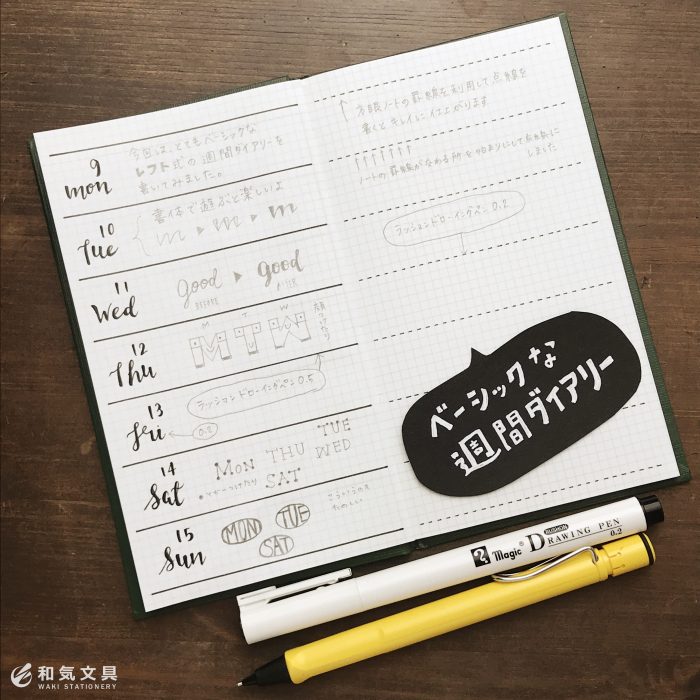 9
mon
今回は、とてもベーシックな
レフト式の週間ダイアリーを
書いてみました。
10
Tue
書体で遊ぶと楽しいよ
m ▶ m ▶ m
11
Wed
good ▶ good
BEFORE AFTER
12
Thu
M T W
MTW
ラッションドローイングペン0.5
13
fri
0.2
14
Sat
MON THU TUE
SAT WED
15
Sun
MON TUE
SAT
こういうのも
たのしい
↑ 方眼ノートの罫線を利用して点線を
書くとキレイに仕上がります
↑↑↑↑↑↑↑
ノートの罫線が交わる所を始まりにして点線に
しました
ラッションドローイングペン0.2
ベーシックな
週間ダイアリー
Magic® RUSHON DRAWING PEN 0.2
和気文具
WAKI STATIONERY